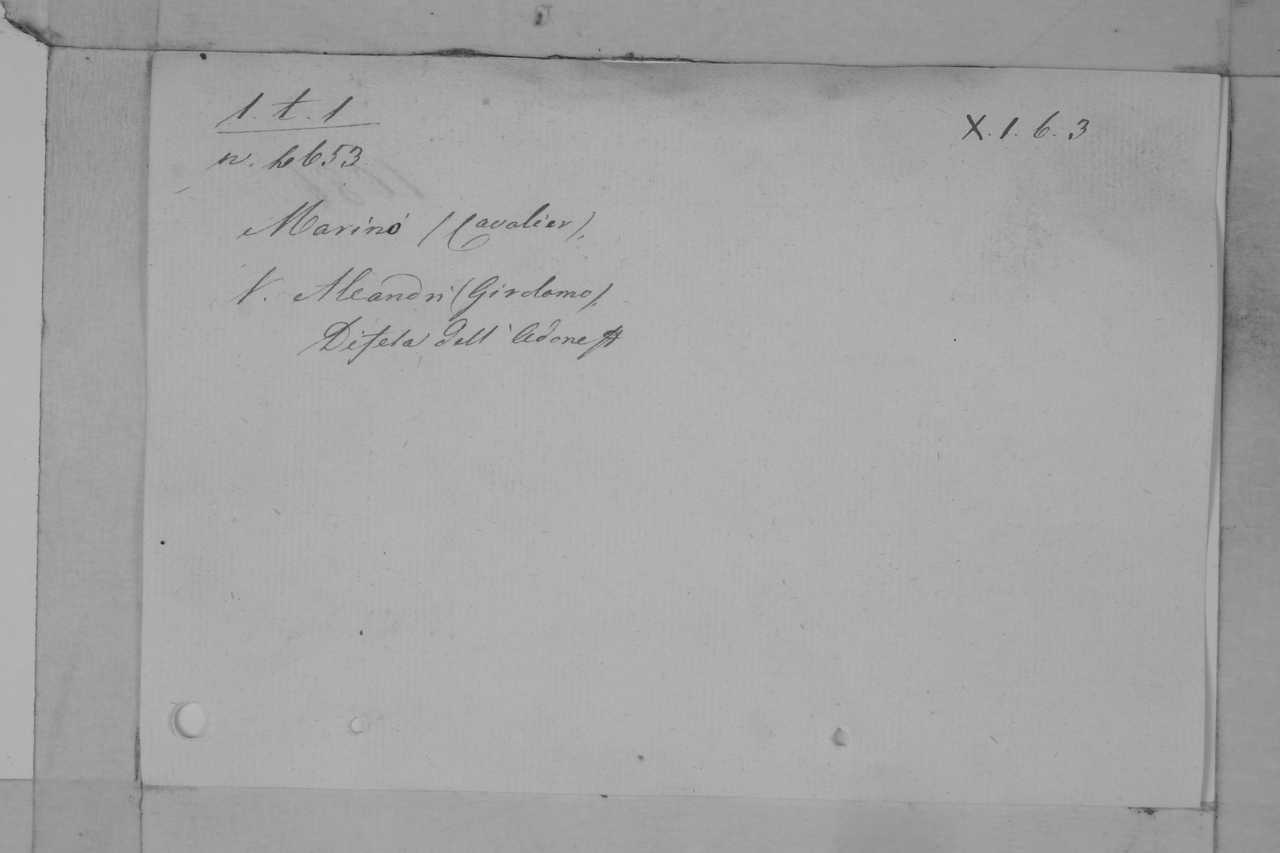 1. t. 1
X. 1. 6. 3
n. 2653
Marino (Cavalier).
V. Aleandri (Girolamo)
Difesa dell' Adone